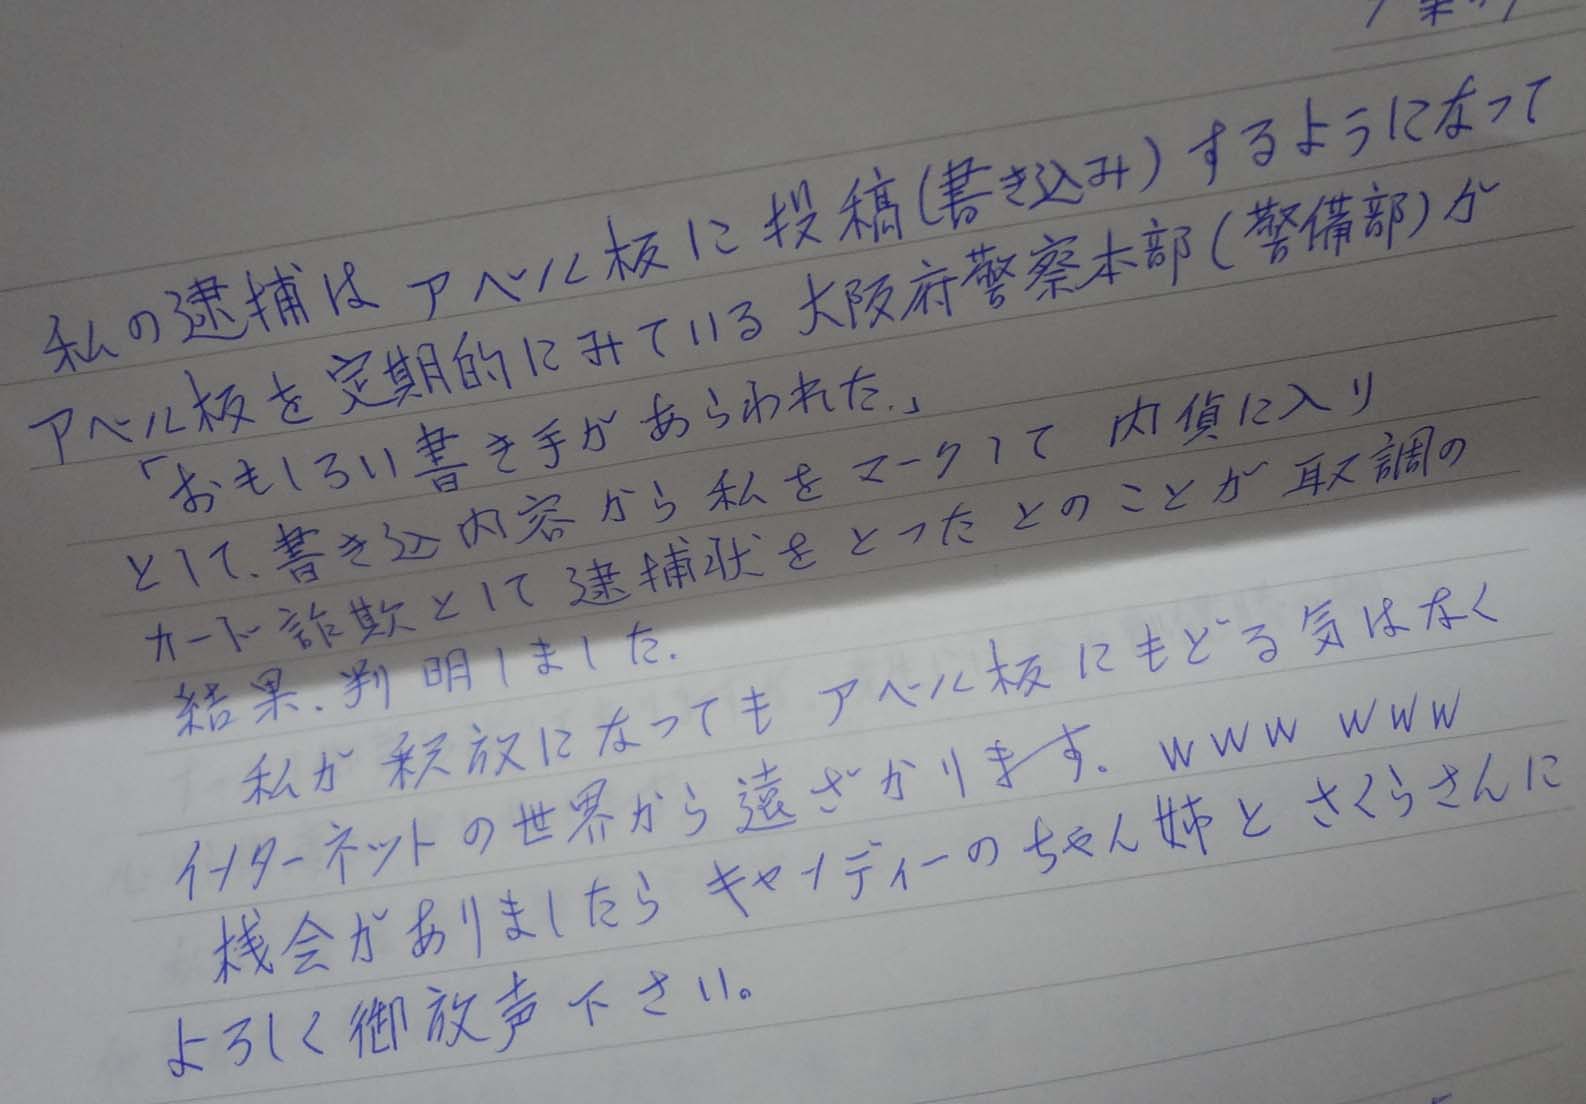 私の逮捕はアベル板に投稿(書き込み)するようになって
アベル板を定期的にみている大阪府警察本部(警備部)が
「おもしろい書き手があらわれた.」
として、書き込内容から私をマークして内偵に入り
カード詐欺として逮捕状をとったとのことが取調の
結果、判明しました.
私が釈放になってもアベル板にもどる気はなく
インターネットの世界から遠ざかります。www www
機会がありましたらキャンディーのちゃん姉とさくらさんに
よろしく御放声下さい。